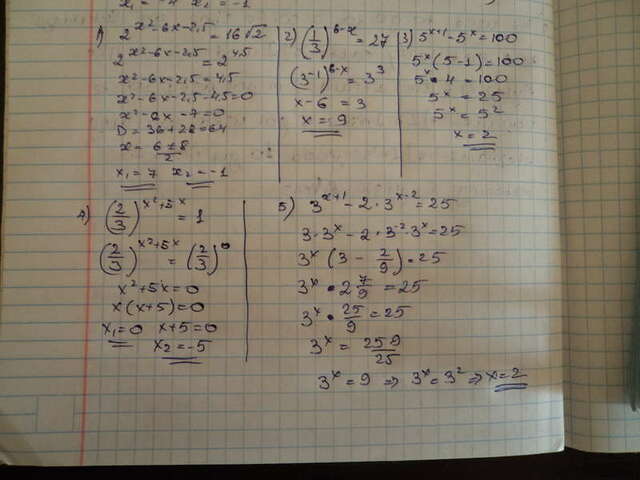 x₁ = -4 x₂ = -1
1) 2^(x²-6x-2,5) = 16√2
2^(x²-6x-2,5) = 2^(4,5)
x²-6x-2,5 = 4,5
x²-6x-2,5-4,5=0
x²-6x-7=0
D = 36+28=64
x = (6±8)/2
x₁ = 7 x₂ = -1
2) (1/3)^(6-x) = 27
(3⁻¹)^(6-x) = 3³
x-6 = 3
x = 9
3) 5^(x+1) - 5^x = 100
5^x (5-1) = 100
5^x • 4 = 100
5^x = 25
5^x = 5²
x = 2
4) (2/3)^(x²+5x) = 1
(2/3)^(x²+5x) = (2/3)⁰
x²+5x=0
x(x+5)=0
x₁=0 x+5=0
x₂ = -5
5) 3^(x+1) - 2·3^(x-2) = 25
3·3^x - 2·3⁻²·3^x = 25
3^x (3 - 2/9) = 25
3^x • 2 7/9 = 25
3^x • 25/9 = 25
3^x = 25·9/25
3^x = 9 => 3^x = 3² => x = 2